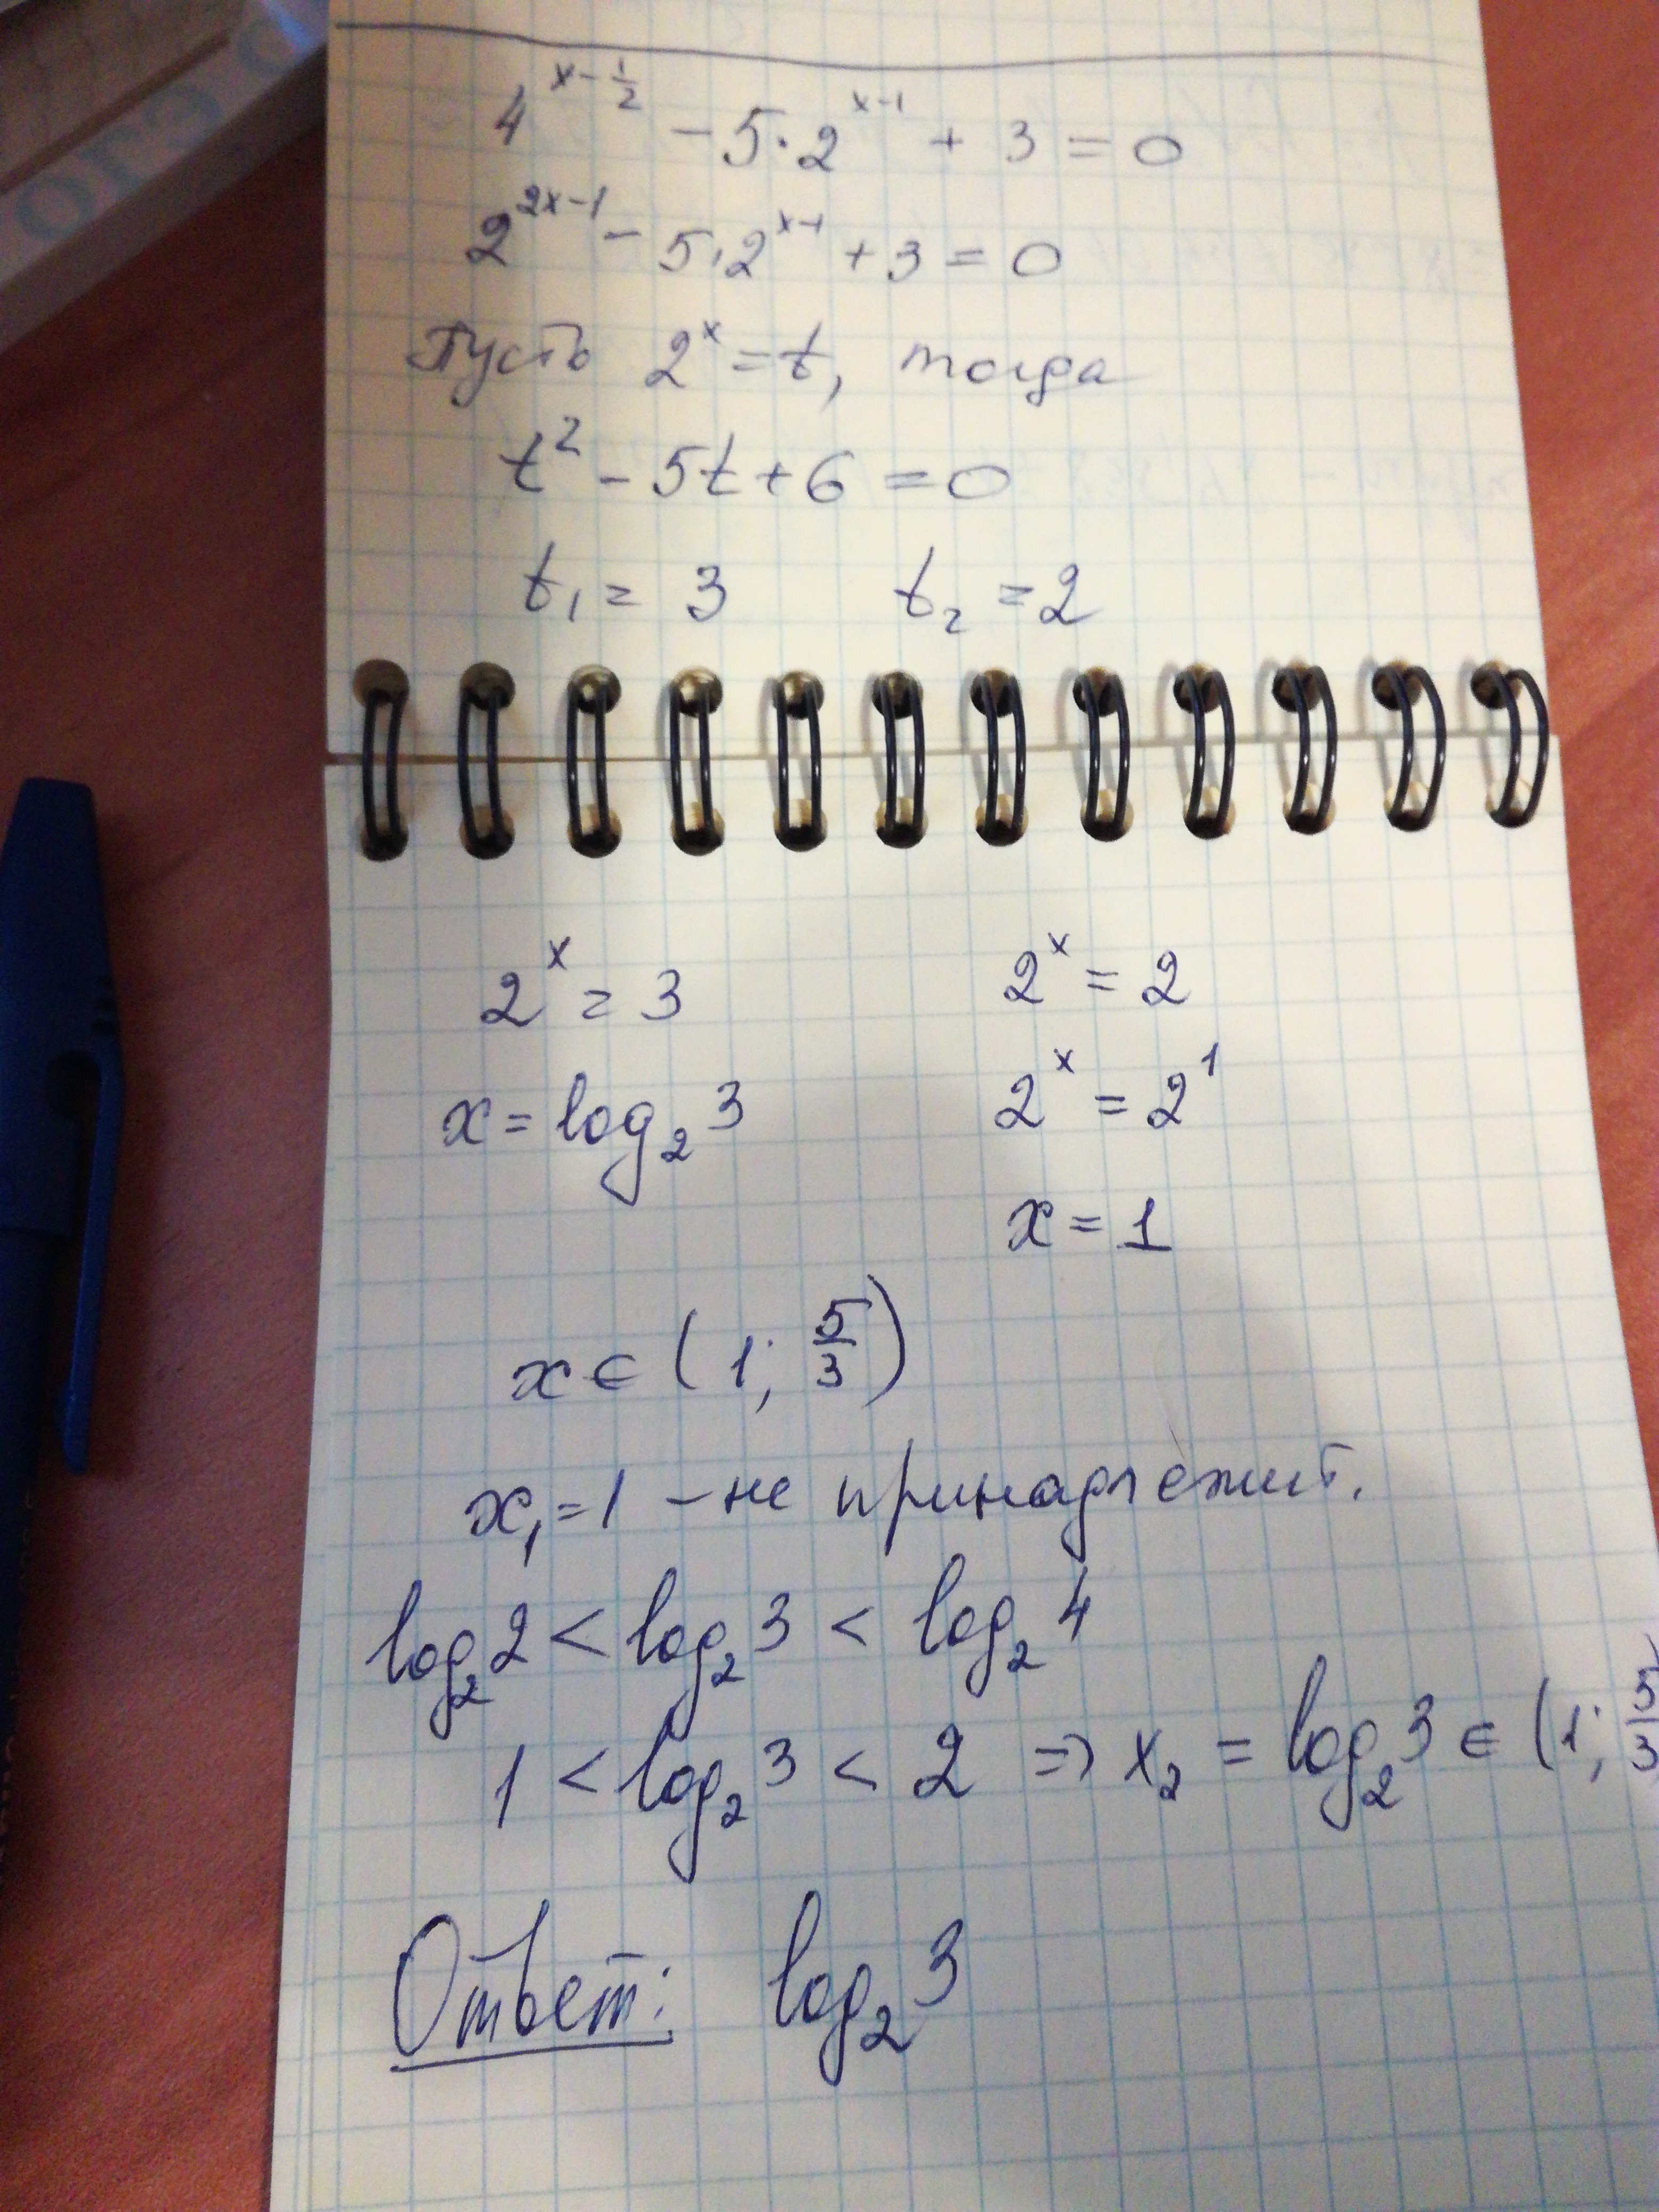 4^{x-\frac{1}{2}} - 5·2^{x-1} + 3 = 0
2^{2x-1} - 5·2^{x-1} + 3 = 0
Пусть 2^x = t, тогда
t^2 - 5t + 6 = 0
t_1 = 3 t_2 = 2
2^x = 3 2^x = 2
x = log_2 3 2^x = 2^1
x = 1
x ∈ (1; \frac{5}{3})
x_1 = 1 - не принадлежит.
log_2 2 < log_2 3 < log_2 4
1 < log_2 3 < 2 => x_2 = log_2 3 ∈ (1; \frac{5}{3})
Ответ: log_2 3